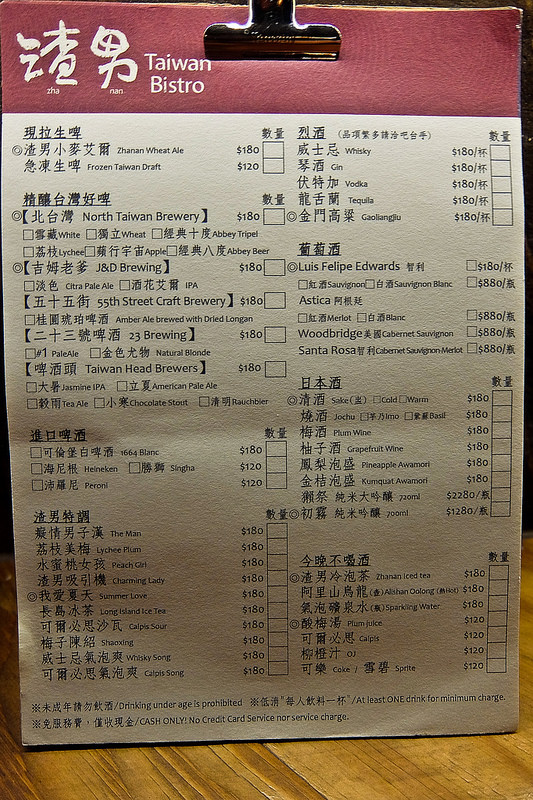 渣男 Taiwan Bistro
zha nan
現拉生啤 數量
◎渣男小麥艾爾 Zhanan Wheat Ale $180
急凍生啤 Frozen Taiwan Draft $120
精釀台灣好啤 數量
◎【北台灣 North Taiwan Brewery】 $180
□雪藏White □獨立Wheat □經典十度Abbey Tripel
□荔枝Lychee □蘋行宇宙Apple □經典八度Abbey Beer
◎【吉姆老爹 J&D Brewing】 $180
□淡色 Citra Pale Ale □酒花艾爾 IPA
【五十五街 55th Street Craft Brewery】 $180
□桂圓琥珀啤酒 Amber Ale brewed with Dried Longan
【二十三號啤酒 23 Brewing】 $180
□#1 PaleAle □金色尤物 Natural Blonde
【啤酒頭 Taiwan Head Brewers】 $180
□大暑Jasmine IPA □立夏American Pale Ale
□穀雨Tea Ale □小寒Chocolate Stout □清明Rauchbier
進口啤酒 數量
□可倫堡白啤酒 1664 Blanc $180
□海尼根 Heineken □勝獅 Singha $120
□沛羅尼 Peroni $120
渣男特調 數量
癡情男子漢 The Man $180
荔枝美梅 Lychee Plum $180
水蜜桃女孩 Peach Girl $180
渣男吸引機 Charming Lady $180
◎我愛夏天 Summer Love $180
長島冰茶 Long Island Ice Tea $180
可爾必思沙瓦 Calpis Sour $180
梅子陳紹 Shaoxing $180
威士忌氣泡爽 Whisky Song $180
可爾必思氣泡爽 Calpis Song $180
烈酒 (品項繁多請洽吧台手) 數量
威士忌 Whisky $180/杯
琴酒 Gin $180/杯
伏特加 Vodka $180/杯
龍舌蘭 Tequila $180/杯
◎金門高粱 Gaoliangjiu $180/杯
葡萄酒 數量
◎Luis Felipe Edwards 智利 □$180/杯
□紅酒Sauvignon □白酒Sauvignon Blanc □$880/瓶
Astica 阿根廷
□紅酒Merlot □白酒Blanc □$880/瓶
Woodbridge美國Cabernet Sauvignon □$880/瓶
Santa Rosa智利Cabernet Sauvignon-Merlot □$880/瓶
日本酒 數量
◎清酒 Sake(壺) □Cold □Warm $180
燒酒 Jochu □芋乃Imo □紫蘇Basil $180
梅酒 Plum Wine $180
柚子酒 Grapefruit Wine $180
鳳梨泡盛 Pineapple Awamori $180
金桔泡盛 Kumquat Awamori $180
獺祭 純米大吟釀 720ml $2280/瓶
◎初霧 純米吟釀 700ml $1280/瓶
今晚不喝酒 數量
◎渣男冷泡茶 Zhanan Iced tea $180
阿里山烏龍(壺)Alishan Oolong (熱Hot) $180
氣泡礦泉水(瓶)Sparkling Water $180
◎酸梅湯 Plum juice $120
可爾必思 Calpis $120
柳橙汁 OJ $120
可樂 Coke / 雪碧 Sprite $120
※未成年請勿飲酒/Drinking under age is prohibited ※低消"每人飲料一杯"/At least ONE drink for minimum charge.
※免服務費，僅收現金/CASH ONLY! No Credit Card Service nor service charge.